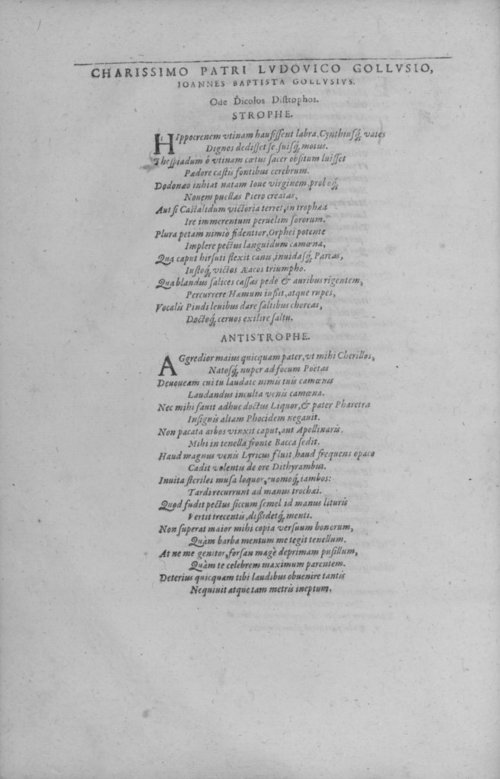 CHARISSIMO PATRI LVDOVICO GOLLVSIO,
IOANNES BAPTISTA GOLLVSIVS.
Ode Dicolos Distrophos.
STROPHE.
HIppocrenem vtinam hausissent labra, Cynthiusq́; vates
Dignos dedisset se, suisq́; motus.
Thespiadum ô vtinam cœtus sacer obsitum luisset
Pædore castis fontibus cerebrum.
Dodonæo inhiat natam Ioue virginem, prol oq́;
Nouem puellas Piero creatas,
Aut si Castalidum victoria terret, en trophæa
Ire immerentum peruelim sororum.
Plura petam nimiò fidentior, Orphei potente
Implere pectus languidum camœna,
Qua caput hirsuti flexit canis, inuidasq́; Parcas,
Iustoq́; victos Æacos triumpho.
Qua blandus salices cassas pede & auribus rigentem,
Percurrere Hæmum iussit, atque rupes,
Vocalis Pindi leuibus dare saltibus choreas,
Doctoq́; ceruos exilire saltu.
ANTISTROPHE.
AGgredior maius quicquam pater, vt mihi Cherillos,
Natosq́; nuper ad focum Poetas
Deuoueam cui tu laudate nimis tuis camœnis
Laudandus inculta venis camœna.
Nec mihi fauit adhuc doctus Liquor, & pater Pharetra
Insignis altam Phocidem negauit.
Non pacata arbos vinxit caput, aut Apollinaris
Mihi in tenella fronte Bacca sedit.
Haud magnus venis Lyricus fluit, haud frequens opaco
Cadit volentu de ore Dithyrambus.
Inuita steriles musa loquor, vomoq́; iambos:
Tardi recurrunt ad manus trochæi.
Quod fudit pectus siccum semel id manus lituris
Vertit trecentis, dissidetq́; menti.
Non superat maior mihi copia versuum bonorum,
Quàm barba mentum me tegit tenellum.
At ne me genitor, forsan magè deprimam pusillum,
Quàm te celebrem maximum parentem.
Deterius quicquam tibi laudibus obuenire tantis
Nequiuit atque tam metris ineptum,